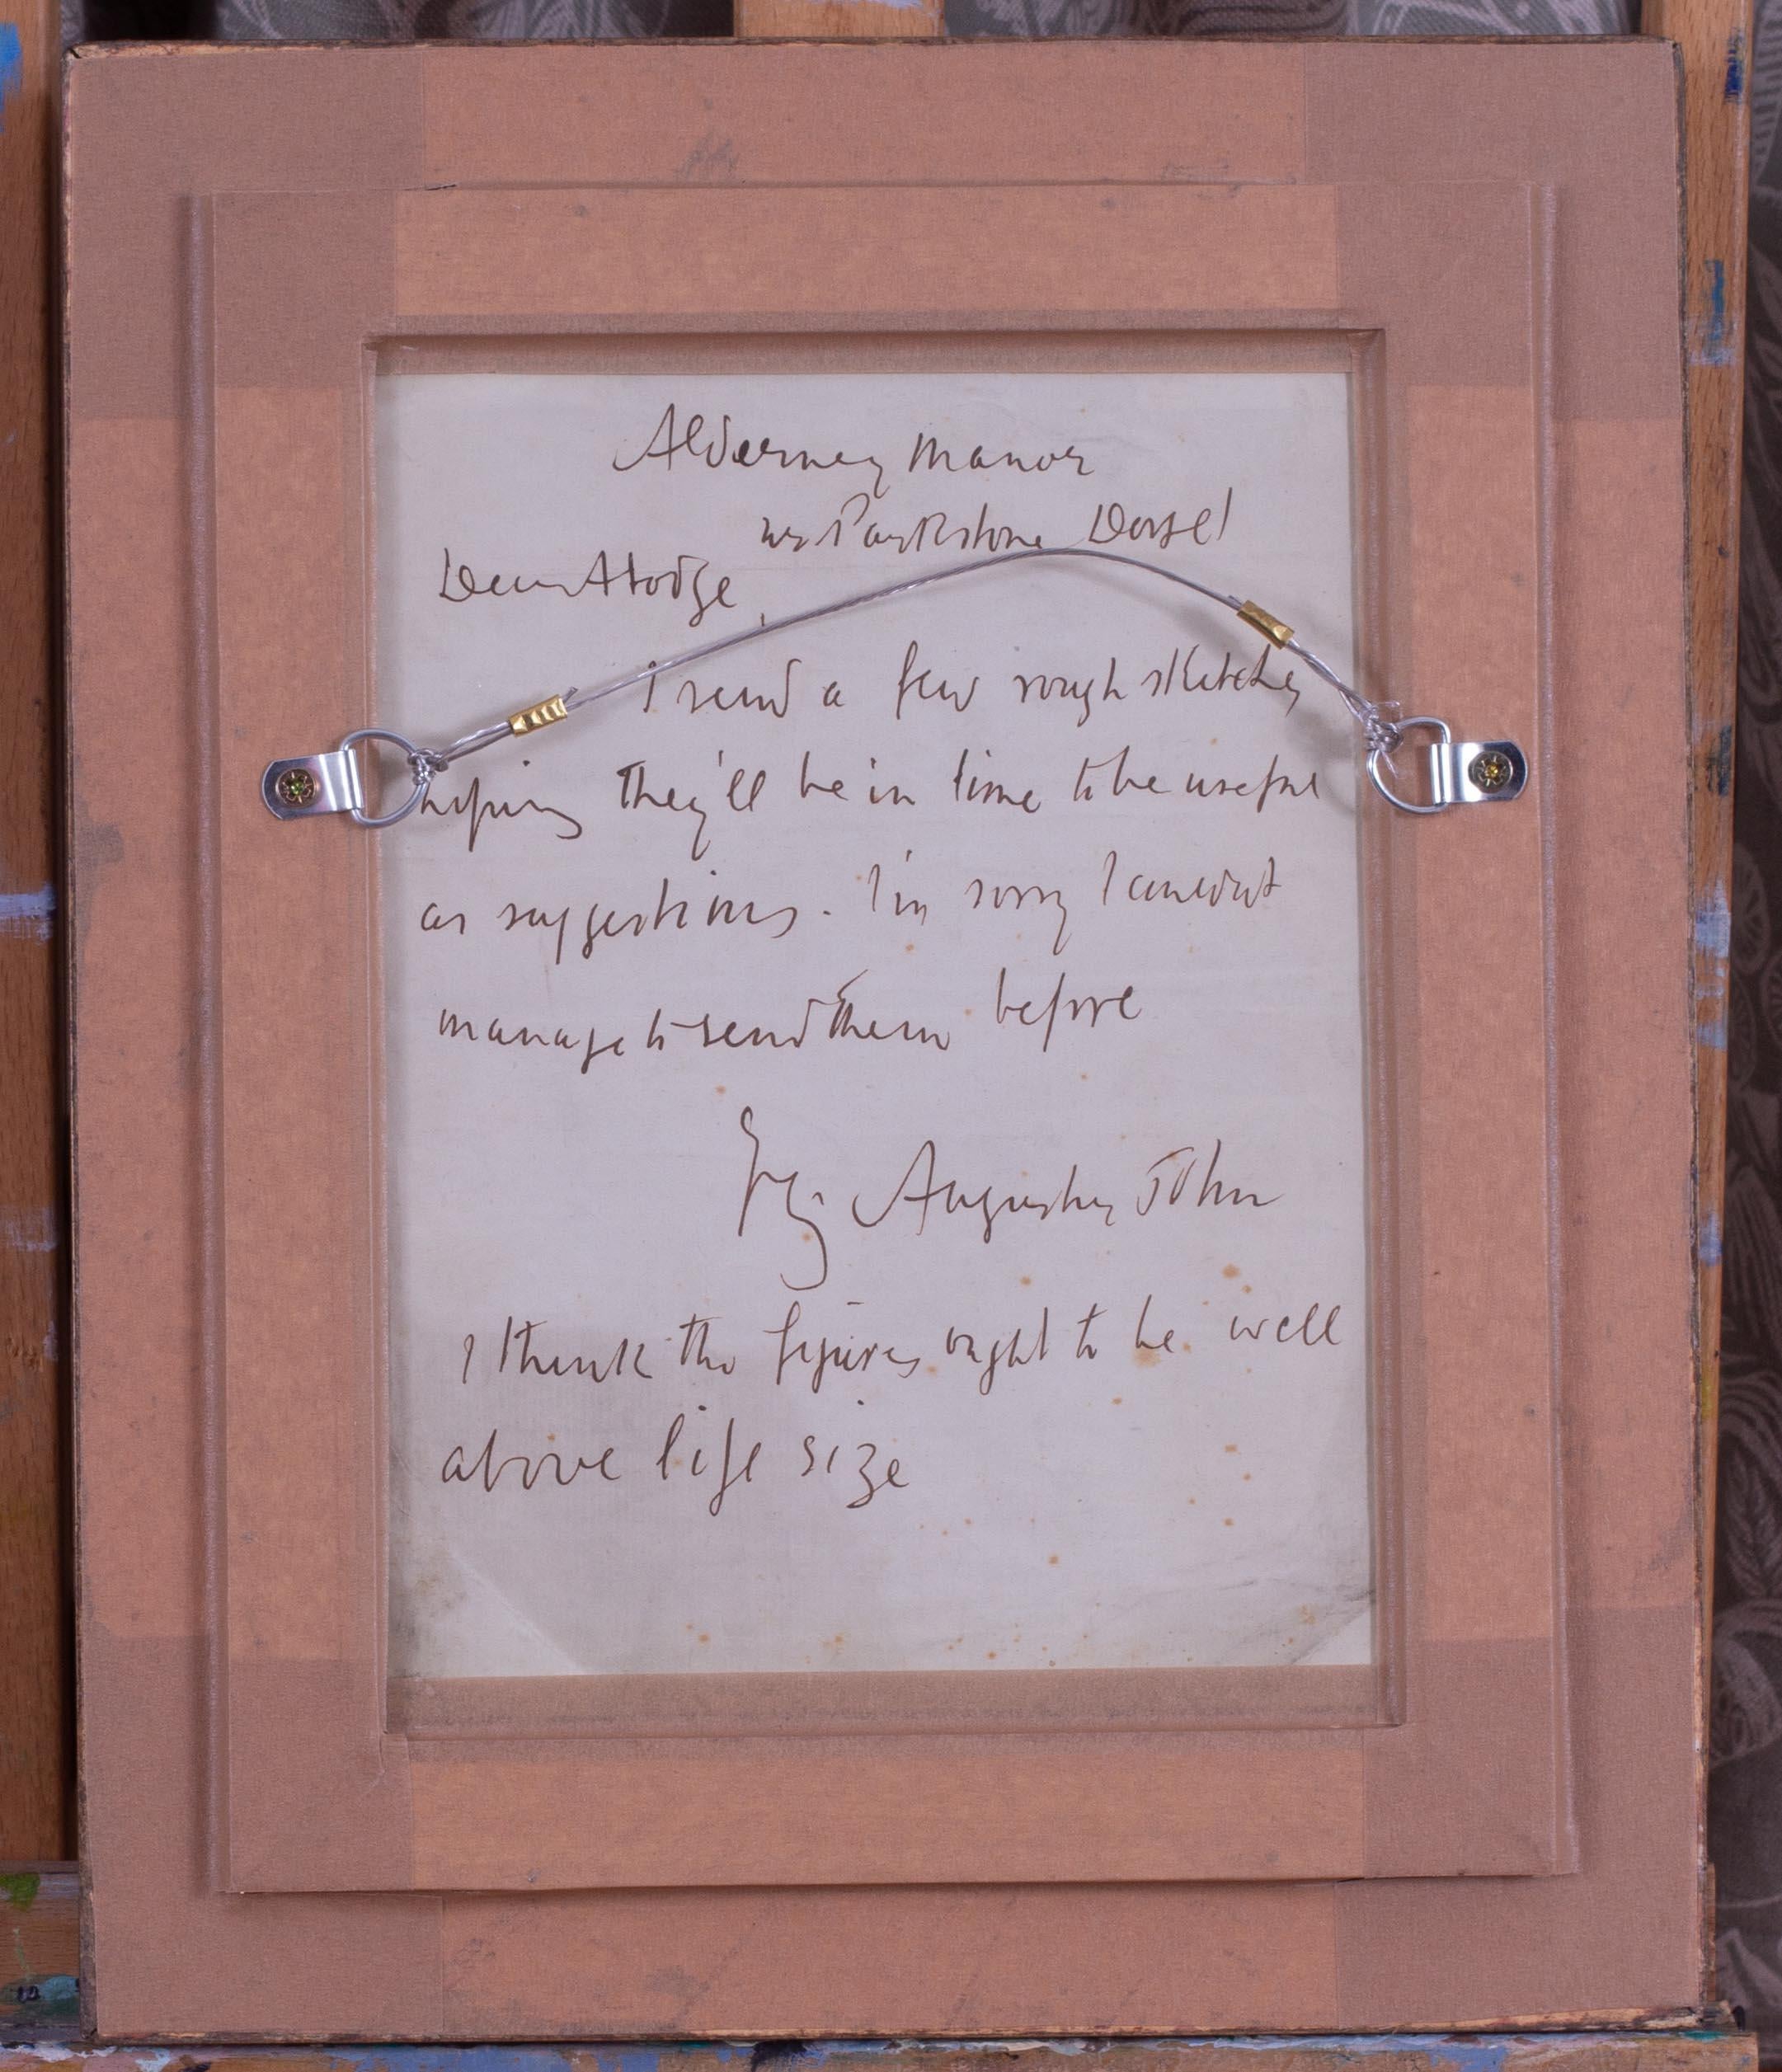 Alderney Manor
nr Parkstone Dorset
Dear Hodge,
I send a few rough sketches
hoping they'll be in time to be useful
as suggestions. I'm sorry I couldn't
manage to send them before
Augustus John
I think the figures ought to be well
above life size